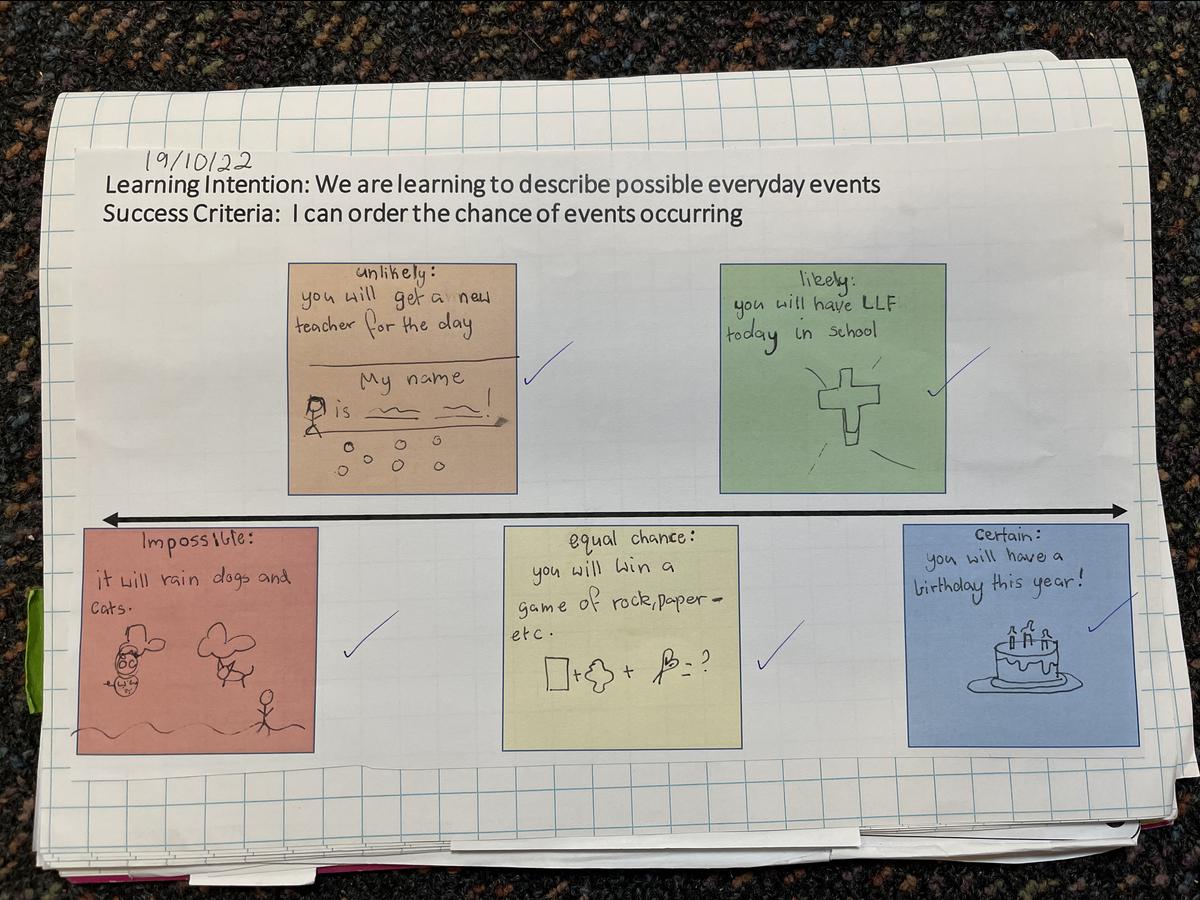 19/10/22
Learning Intention: We are learning to describe possible everyday events
Success Criteria: I can order the chance of events occurring
unlikely:
you will get a new
teacher for the day
My name
is !
likely:
you will have LLF
today in school
Impossible:
it will rain dogs and
cats.
equal chance:
you will win a
game of rock,paper-
etc.
+ + = ?
certain:
you will have a
birthday this year!